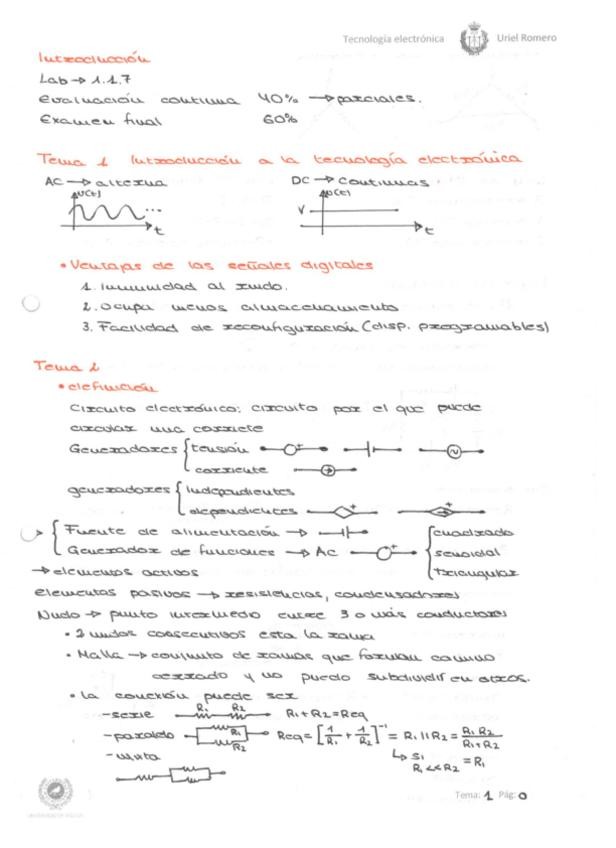 Tecnología electrónica Uriel Romero
Introducción
Lab → 1.1.7
evaluación continua 40% → parciales.
Examen final 60%
Tema 1 Introducción a la tecnología electrónica
AC → alterna DC → continuas.
u(t) t
u(t) V t
• Ventajas de las señales digitales
1. Inmunidad al ruido.
2. Ocupa menos almacenamiento
3. Facilidad de reconfiguración (disp. programables)
Tema 2
• definición
Circuito electrónico: circuito por el que puede
circular una corriete
Generadores { tensión
corriente
generadores { independientes
dependientes
{ Fuente de alimentación → { cuadrado
Generador de funciones → AC senoidal
→ elementos activos triangular
elementos pasivos → resistencias, condensadores
Nudo → punto intermedio entre 3 o más conductores
• 2 nudos consecutivos esta la rama
• Malla → conjunto de ramas que forman camino
cerrado y no puedo subdividir en otros.
• la conexión puede ser
-serie R₁ R₂ R₁+R₂=Req
-paralelo R₁ R₂ Req=[1/R₁ + 1/R₂]⁻¹ = R₁||R₂ = R₁R₂/R₁+R₂
-mixta ↳ si R₁<<R₂ = R₁
Tema: 1 Pág: 0